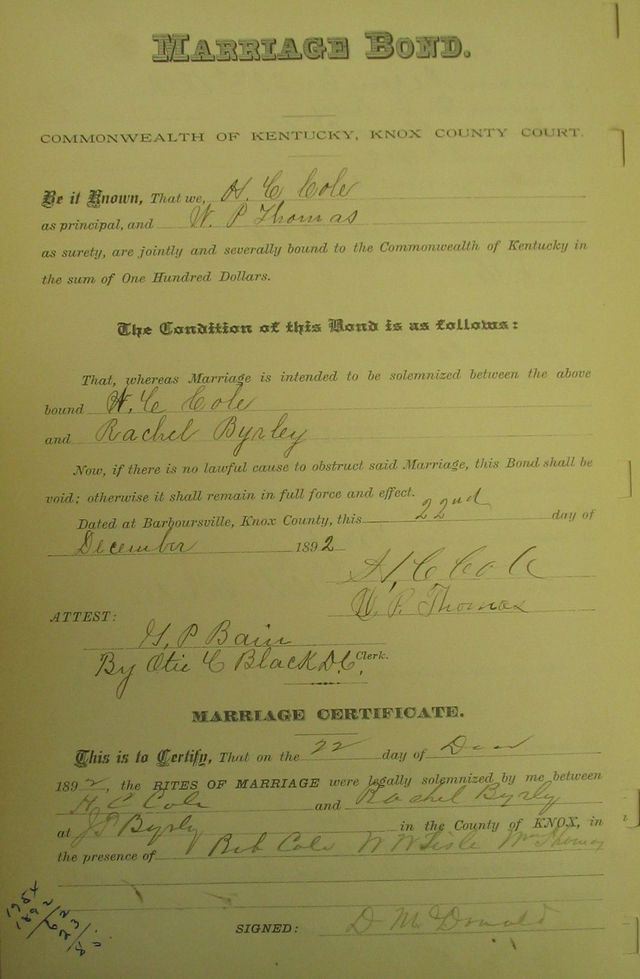 MARRIAGE BOND.
COMMONWEALTH OF KENTUCKY, KNOX COUNTY COURT.
Be it Known, That we, H. C Cole
as principal, and W. P Thomas
as surety, are jointly and severally bound to the Commonwealth of Kentucky in
the sum of One Hundred Dollars.
The Condition of this Bond is as follows:
That, whereas Marriage is intended to be solemnized between the above
bound H. C Cole
and Rachel Byrley
Now, if there is no lawful cause to obstruct said Marriage, this Bond shall be
void; otherwise it shall remain in full force and effect.
Dated at Barboursville, Knox County, this 22nd day of
December 1892
H. C Cole
W. P. Thomas
ATTEST:
G. P Bain
By Otie C Black D.C. Clerk.
MARRIAGE CERTIFICATE.
This is to Certify, That on the 22 day of
1892, the RITES OF MARRIAGE were legally solemnized by me between
H C Cole and Rachel Byrly
at J P Byrly in the County of KNOX, in
the presence of Bob Cole W W Lisle Wm Thomas
1954
1892
62
23
SIGNED: D McDonald